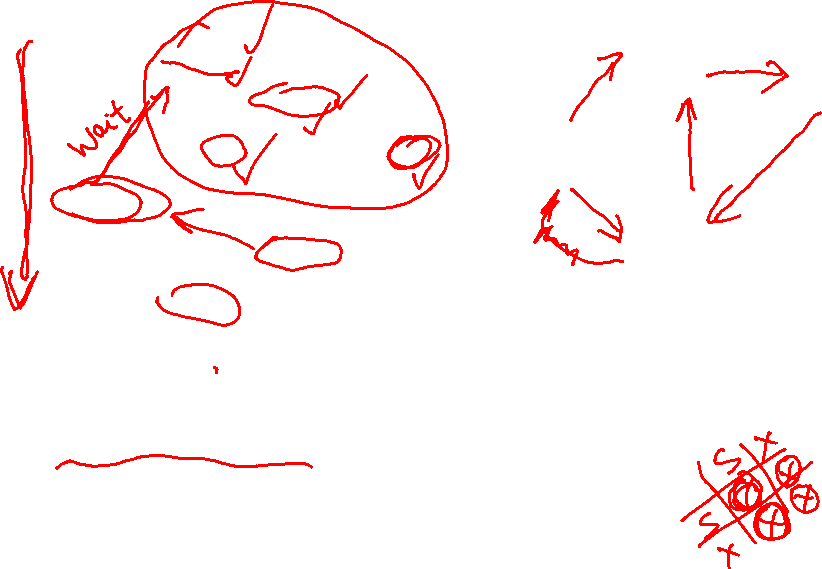 Wait
S X
S
X